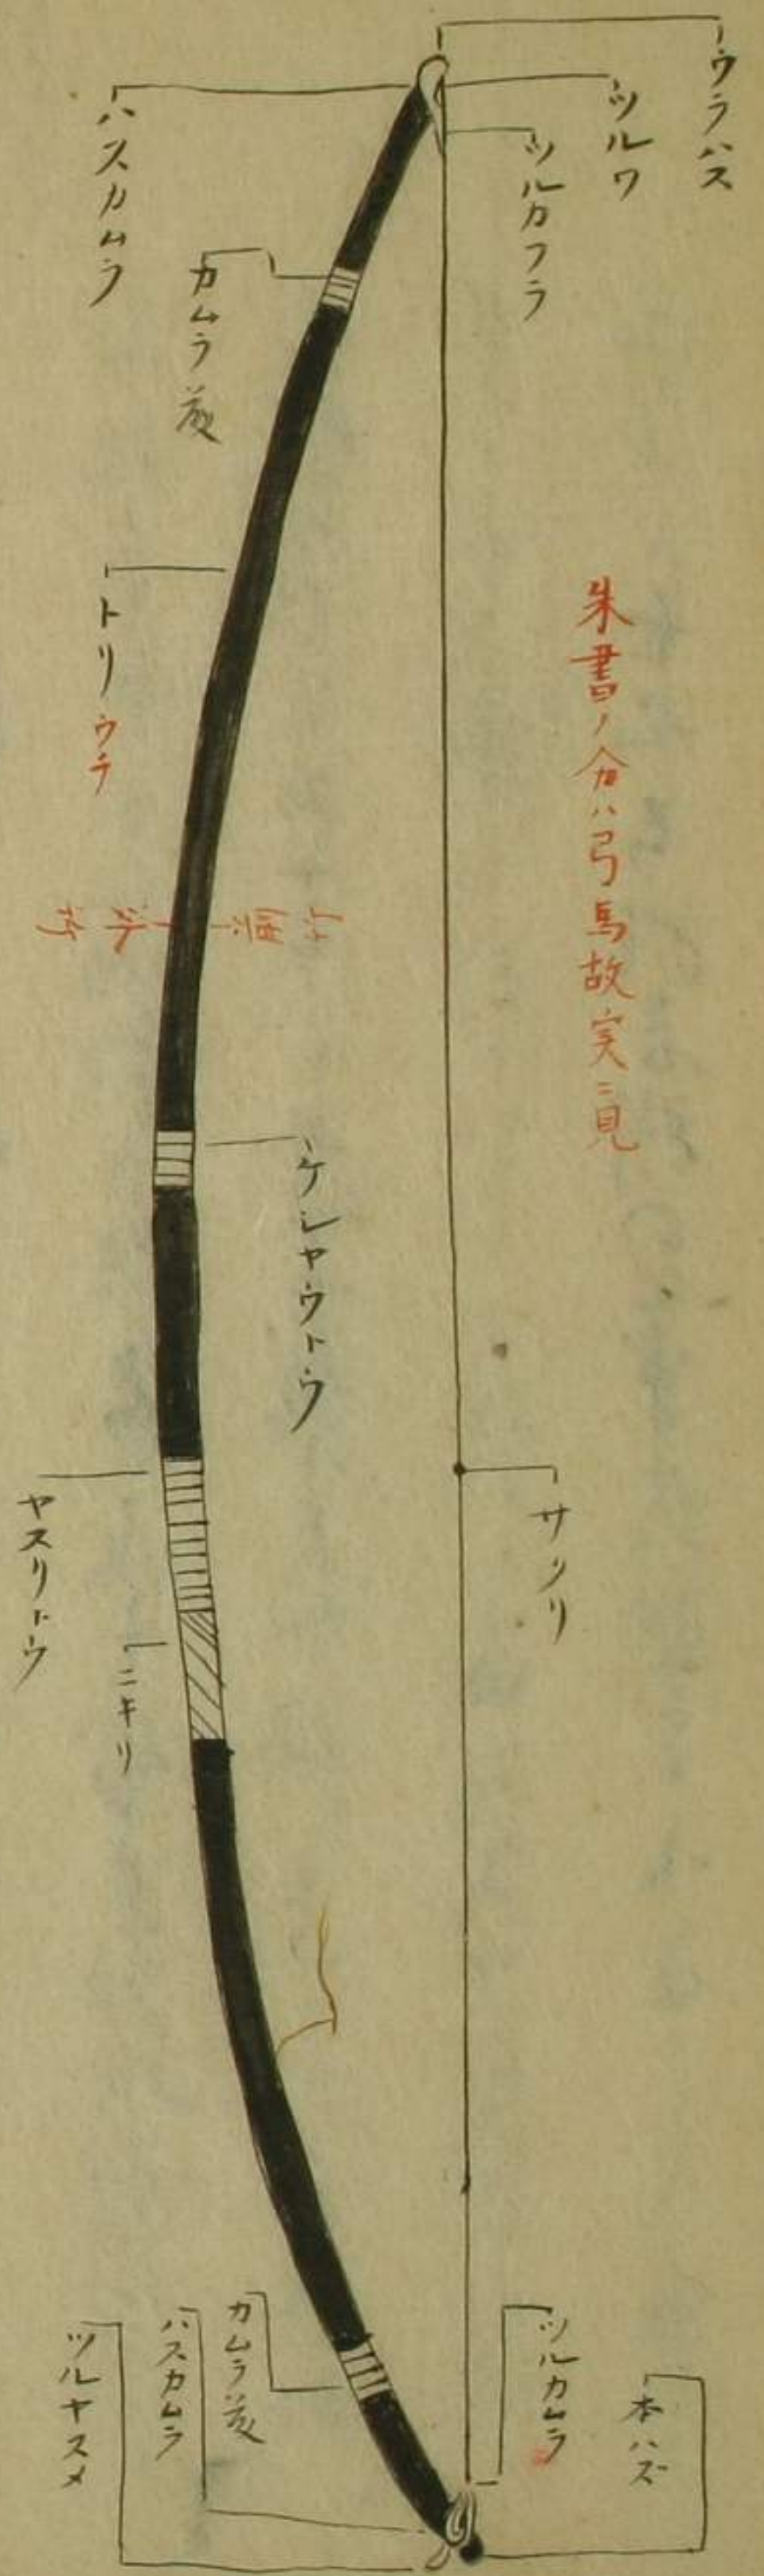 ウラハス
ツルワ
ツルカフラ
ハスカムラ
カムラ藤
トリウチ
朱書ノ分ハ弓馬故実ニ見
ケシヤウトウ
サクリ
ヤスリトウ
ニキリ
本ハズ
ツルカムラ
カムラ藤
ハスカムラ
ツルヤスメ